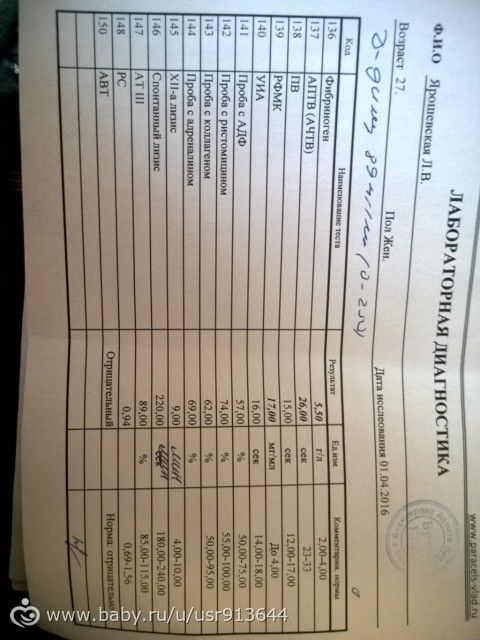 www.paracels-vlad.ru
ЛАБОРАТОРНАЯ ДИАГНОСТИКА
Ф.И.О Ярошевская Л.В.
Возраст 27. Пол Жен. Дата исслеования 01.04.2016
Код Наименование теста Результат Ед.изм. Комментарии, нормы
136 Фибриноген 5,50 г/л 2,00-4,00
137 АПТВ (АЧТВ) 26,00 сек 23-33
138 ПВ 15,00 сек 12,00-17,00
139 РФМК 17,00 мг/мл До 4,00
140 УИА 16,00 сек 14,00-18,00
141 Проба с АДФ 57,00 % 50,00-75,00
142 Проба с ристомицином 74,00 % 55,00-100,00
143 Проба с коллагеном 62,00 % 50,00-95,00
144 Проба с адреналином 69,00 %
145 XII-а лизис 9,00 мин 4,00-10,00
146 Спонтанный лизис 220,00 мин 180,00-240,00
147 АТ III 89,00 % 85,00-115,00
148 РС 0,94 0,69-1,56
150 АВТ Отрицательный Норма: отрицательн
www.baby.ru/u/usr913644